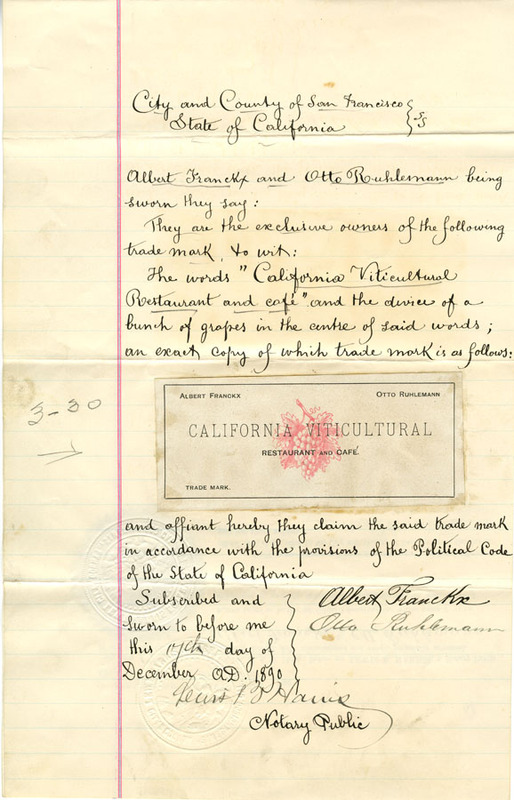 City and County of San Francisco } SS
State of California
Albert Franckx and Otto Ruhlemann being
sworn they say:
They are the exclusive owners of the following
trade mark, to wit:
The words "California Viticultural
Restaurant and café" and the device of a
bunch of grapes in the centre of said words;
an exact copy of which trade mark is as follows:
3-30
ALBERT FRANCKX OTTO RUHLEMANN
CALIFORNIA VITICULTURAL
RESTAURANT AND CAFÉ
TRADE MARK.
and affiant hereby they claim the said trade mark
in accordance with the provisions of the Political Code
of the State of California
Subscribed and
sworn to before me
this 17th day of
December A.D. 1890
Albert Franckx
Otto Ruhlemann
Notary Public